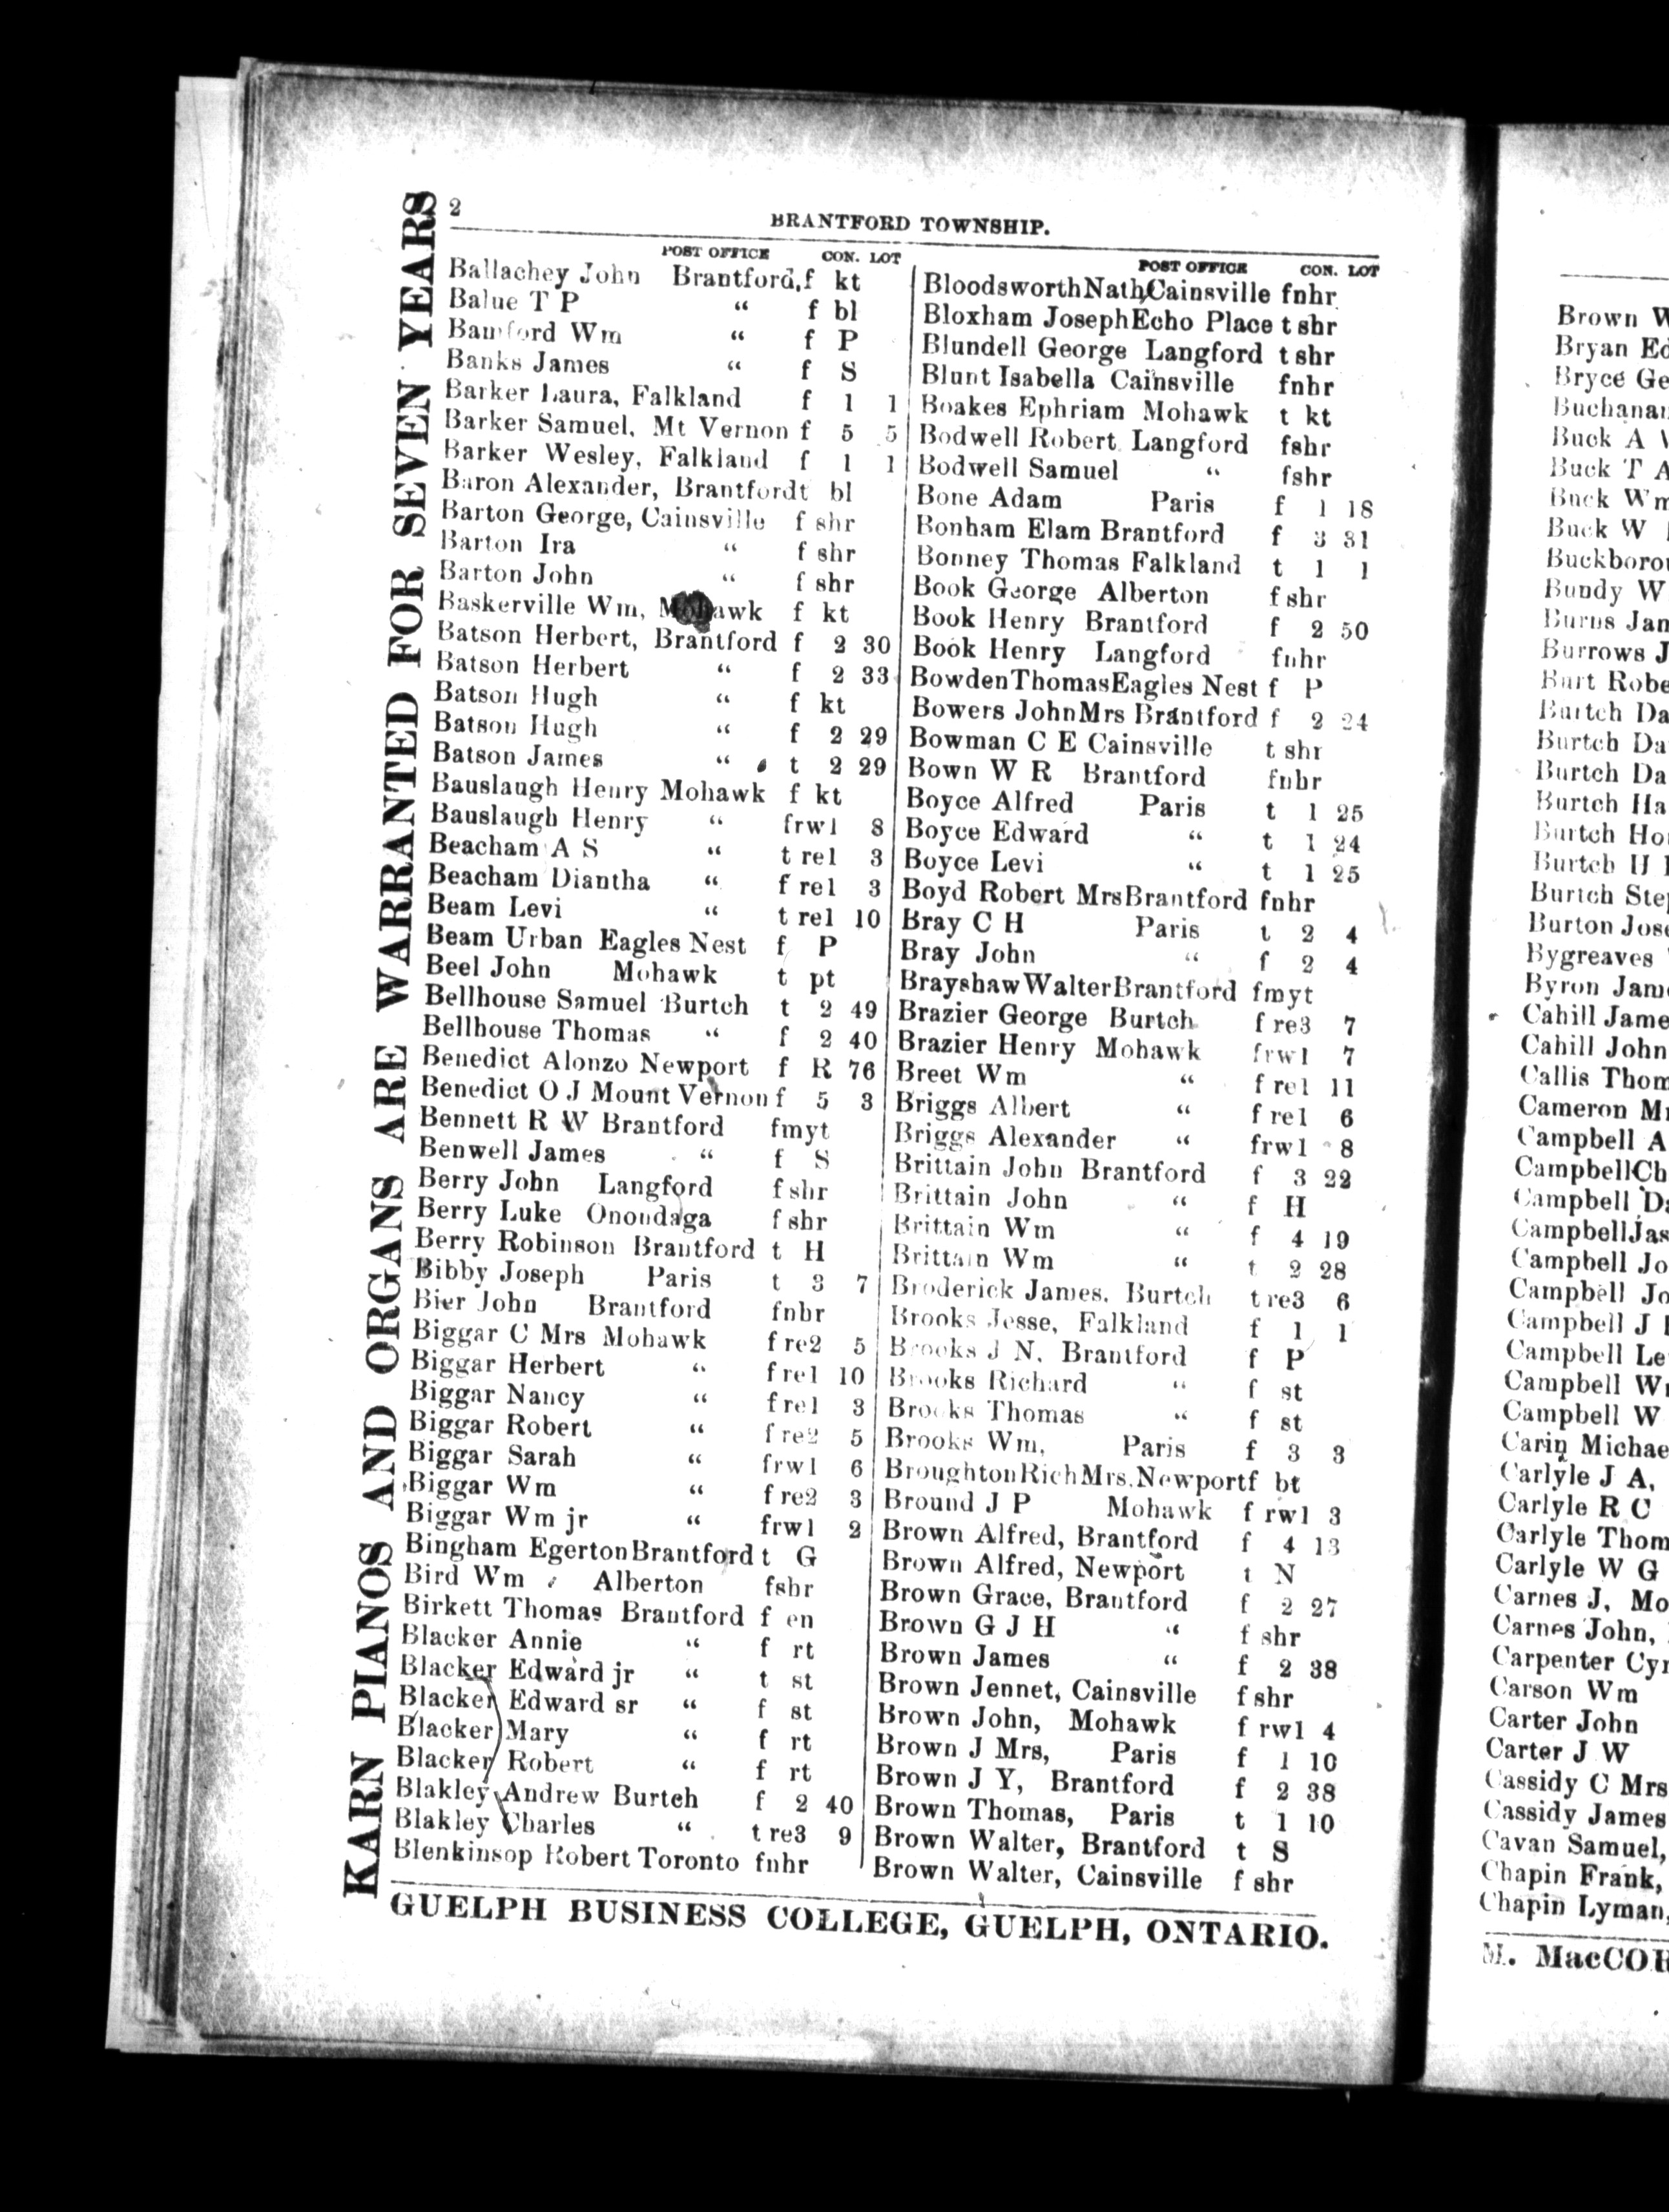 2
BRANTFORD TOWNSHIP.
KARN PIANOS AND ORGANS ARE WARRANTED FOR SEVEN YEARS
POST OFFICE CON. LOT
Ballachey John Brantford, f kt
Balue T P “ f bl
Bamford Wm “ f P
Banks James “ f S
Barker Laura, Falkland f 1 1
Barker Samuel, Mt Vernon f 5 5
Barker Wesley, Falkland f 1 1
Baron Alexander, Brantford t bl
Barton George, Cainsville f shr
Barton Ira “ f shr
Barton John “ f shr
Baskerville Wm, Mohawk f kt
Batson Herbert, Brantford f 2 30
Batson Herbert “ f 2 33
Batson Hugh “ f kt
Batson Hugh “ f 2 29
Batson James “ t 2 29
Bauslaugh Henry Mohawk f kt
Bauslaugh Henry “ frw1 8
Beacham A S “ t re1 3
Beacham Diantha “ f re1 3
Beam Levi “ t re1 10
Beam Urban Eagles Nest f P
Beel John Mohawk t pt
Bellhouse Samuel Burtch t 2 49
Bellhouse Thomas “ f 2 40
Benedict Alonzo Newport f R 76
Benedict O J Mount Vernon f 5 3
Bennett R W Brantford fmyt
Benwell James “ f S
Berry John Langford f shr
Berry Luke Onondaga f shr
Berry Robinson Brantford t H
Bibby Joseph Paris t 3 7
Bier John Brantford fnhr
Biggar C Mrs Mohawk f re2 5
Biggar Herbert “ f re1 10
Biggar Nancy “ f re1 3
Biggar Robert “ f re2 5
Biggar Sarah “ frw1 6
Biggar Wm “ f re2 3
Biggar Wm jr “ frw1 2
Bingham Egerton Brantford t G
Bird Wm Alberton fshr
Birkett Thomas Brantford f en
Blacker Annie “ f rt
Blacker Edward jr “ t st
Blacker Edward sr “ f st
Blacker Mary “ f rt
Blacker Robert “ f rt
Blakley Andrew Burtch f 2 40
Blakley Charles “ t re3 9
Blenkinsop Robert Toronto fnhr
POST OFFICE CON. LOT
Bloodsworth Nath, Cainsville fnhr
Bloxham Joseph Echo Place t shr
Blundell George Langford t shr
Blunt Isabella Cainsville fnhr
Boakes Ephriam Mohawk t kt
Bodwell Robert Langford fshr
Bodwell Samuel “ fshr
Bone Adam Paris f 1 18
Bonham Elam Brantford f 3 31
Bonney Thomas Falkland t 1 1
Book George Alberton f shr
Book Henry Brantford f 2 50
Book Henry Langford fnhr
Bowden Thomas Eagles Nest f P
Bowers John Mrs Brantford f 2 24
Bowman C E Cainsville t shr
Bown W R Brantford fnhr
Boyce Alfred Paris t 1 25
Boyce Edward “ t 1 24
Boyce Levi “ t 1 25
Boyd Robert Mrs Brantford fnhr
Bray C H Paris t 2 4
Bray John “ f 2 4
Brayshaw Walter Brantford fmyt
Brazier George Burtch f re3 7
Brazier Henry Mohawk frw1 7
Breet Wm “ f re1 11
Briggs Albert “ f re1 6
Briggs Alexander “ frw1 8
Brittain John Brantford f 3 22
Brittain John “ f H
Brittain Wm “ f 4 19
Brittain Wm “ t 2 28
Broderick James, Burtch t re3 6
Brooks Jesse, Falkland f 1 1
Brooks J N, Brantford f P
Brooks Richard “ f st
Brooks Thomas “ f st
Brooks Wm, Paris f 3 3
Broughton Rich Mrs, Newport f bt
Bround J P Mohawk f rw1 3
Brown Alfred, Brantford f 4 13
Brown Alfred, Newport t N
Brown Grace, Brantford f 2 27
Brown G J H “ f shr
Brown James “ f 2 38
Brown Jennet, Cainsville f shr
Brown John, Mohawk f rw1 4
Brown J Mrs, Paris f 1 10
Brown J Y, Brantford f 2 38
Brown Thomas, Paris t 1 10
Brown Walter, Brantford t S
Brown Walter, Cainsville f shr
GUELPH BUSINESS COLLEGE, GUELPH, ONTARIO.
Brown
Bryan
Bryce
Buck A
Buck T A
Buck Wm
Buck W
Bundy W
Burns
Burrows J
Burt
Burtch
Burtch
Burtch
Burtch
Burtch
Burtch
Burtch
Burton
Bygreaves
Byron
Cahill
Cahill John
Callis
Cameron
Campbell A
Campbell
Campbell
Campbell Jas
Campbell
Campbell
Campbell J
Campbell
Campbell
Campbell W
Carin
Carlyle J A,
Carlyle R C
Carlyle
Carlyle W G
Carnes J,
Carnes John,
Carpenter
Carson Wm
Carter John
Carter J W
Cassidy C Mrs
Cassidy James
Cavan Samuel,
Chapin Frank,
Chapin Lyman,
M.